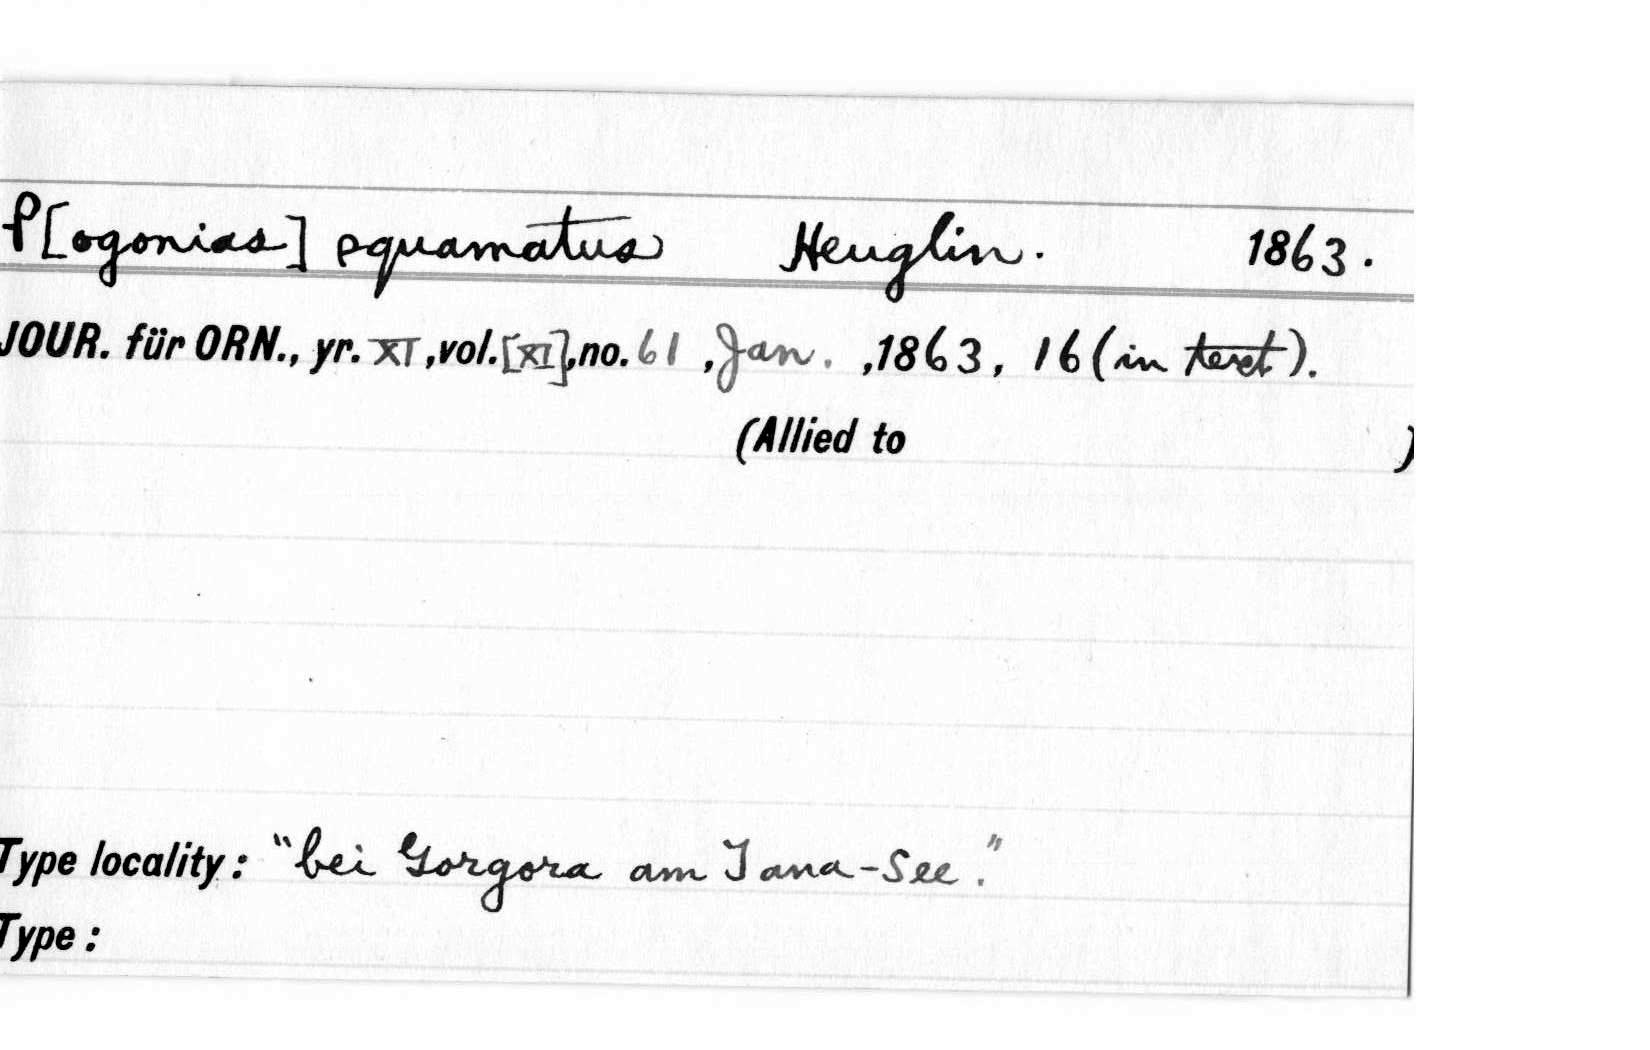 P[ogonias] squamatus Heuglin. 1863.
JOUR. für ORN., yr. XI, vol. [XI], no. 61, Jan., 1863, 16 (in text).
(Allied to )
Type locality: "bei Gorgora am Tana-See."
Type: